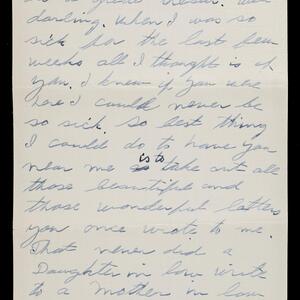 darling. When I was so
sick for the last few
weeks all I thought is of
you. I knew if you were
here I could never be
so sick. So best thing
I could do to have you
near me is to take out all
those beautiful and
those wonderful letters
you once wrote to me.
That never did a
Daughter in law write
to a Mother in law